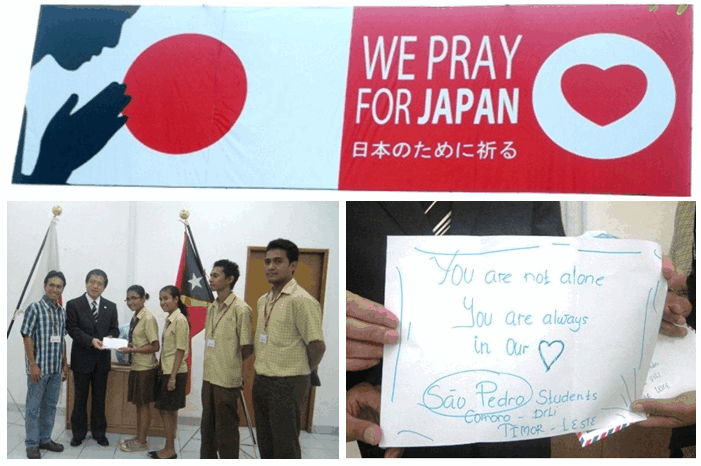 WE PRAY
FOR JAPAN
日本のために祈る
You are not alone
You are always
in our
São Pedro Students
Comoro - Dili
TIMOR - LESTE